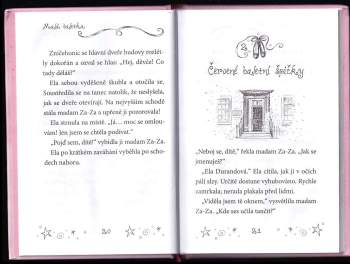 Malá baletka
Zničehonic se hlavní dveře budovy rozlétly
dokořán a ozval se hlas: „Hej, děvče! Co
tady děláš?"
Ela sebou vyděšeně škubla a otočila se.
Soustředila se na tanec natolik, že neslyšela,
jak se dveře otevírají. Na nejvyšším schodě
stála madam Za-Za a upřeně ji pozorovala!
Ela strnula na místě. „Já… moc se omlouvám!
Jen jsem se chtěla podívat."
„Pojď sem, dítě!" vybídla ji madam Za-Za.
Ela po krátkém zaváhání vyběhla po schodech
nahoru.
20
2
Červené baletní špičky
„Neboj se, dítě," řekla madam Za-Za. „Jak se
jmenuješ?"
„Ela Durandová." Ela cítila, jak ji v očích
pálí slzy. Určitě dostane vyhubováno. Rychle
zamrkala; nerada plakala před lidmi.
„Viděla jsem tě oknem," vysvětlila madam
Za-Za. „Kde ses učila tančit?"
21